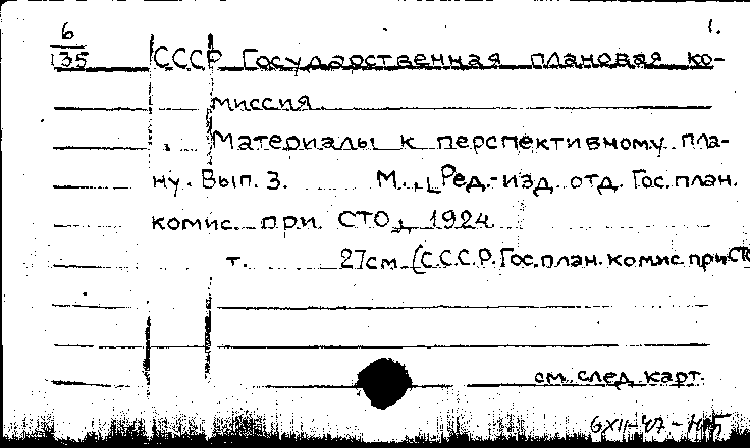 6
135
1.
СССР Государственная плановая ко-
миссия
Материалы к перспективному пла-
ну. Вып. 3. М., Ред.-изд. отд. Гос. план.
комис. при СТО, 1924
т. 27см. (С.С.С.Р. Гос. план. комис. при СТО
см. след. карт.
6XII-47-